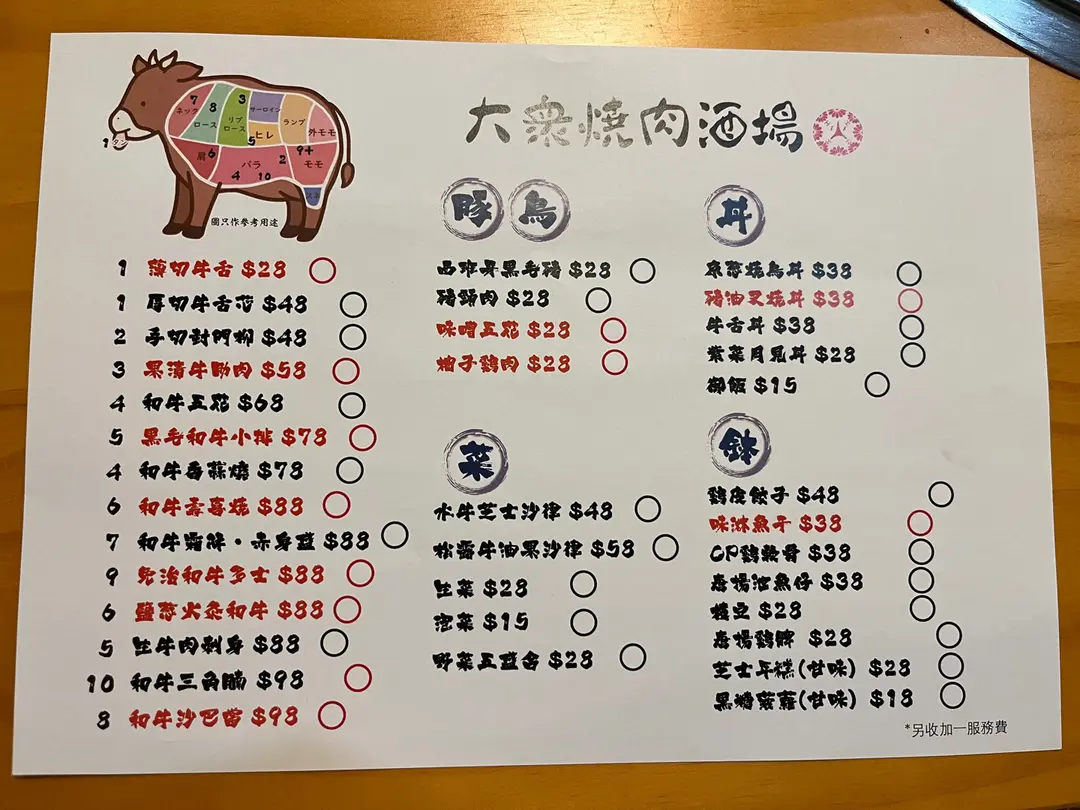 大衆焼肉酒場
7
ネック
8
ロース
3
リブ
ロース
サーロイン
5
ヒレ
ランプ
外モモ
1
タン
肩
6
バラ
4
10
2
9+
モモ
スネ
圖只作參考用途
1 薄切牛舌 $28
1 厚切牛舌芯 $48
2 手切封門柳 $48
3 果漬牛肋肉 $58
4 和牛五花 $68
5 黑毛和牛小排 $78
4 和牛香蒜燒 $78
6 和牛壽喜燒 $88
7 和牛霜降・赤身盛 $88
9 免治和牛多士 $88
6 鹽蔥火灸和牛 $88
5 生牛肉刺身 $88
10 和牛三角腩 $98
8 和牛沙巴當 $98
豚 鳥
西班牙黑毛豬 $28
豬頸肉 $28
味噌五花 $28
柚子鷄肉 $28
菜
水牛芝士沙律 $48
松露牛油果沙律 $58
生菜 $28
泡菜 $15
野菜五盛合 $28
丼
京蔥燒鳥丼 $38
豬油叉燒丼 $38
牛舌丼 $38
紫菜月見丼 $28
御飯 $15
鉢
鷄皮餃子 $48
味淋魚干 $38
CP鷄軟骨 $38
唐揚池魚仔 $38
枝豆 $28
唐揚鷄髀 $28
芝士年糕(甘味) $28
黑糖蕨蘿(甘味) $18
*另收加一服務費